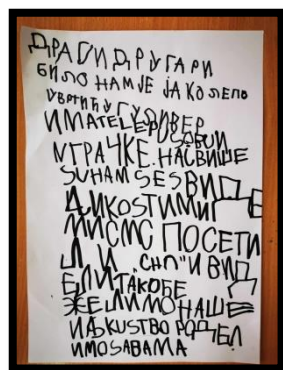 ДРАГИ ДРУГАРИ
БИЛО НАМ ЈЕ ЈАКО ЛЕПО
У ВРТИЋУ ГУЛИВЕР
ИМАТЕ LEPU SOBU И
ИГРАЧКЕ. НАЈВИШЕ
SU НАМ SE SВИДЕ
ЛИ КОSТИМИ
МИ СМО ПОСЕТИ
ЛИ „СНП“ И ВИД
ЕЛИ ТАКОЂЕ
ЖЕЛИМО НАШЕ
ИSКUSTВО PОДЕЛ
ИМО SA ВАМА